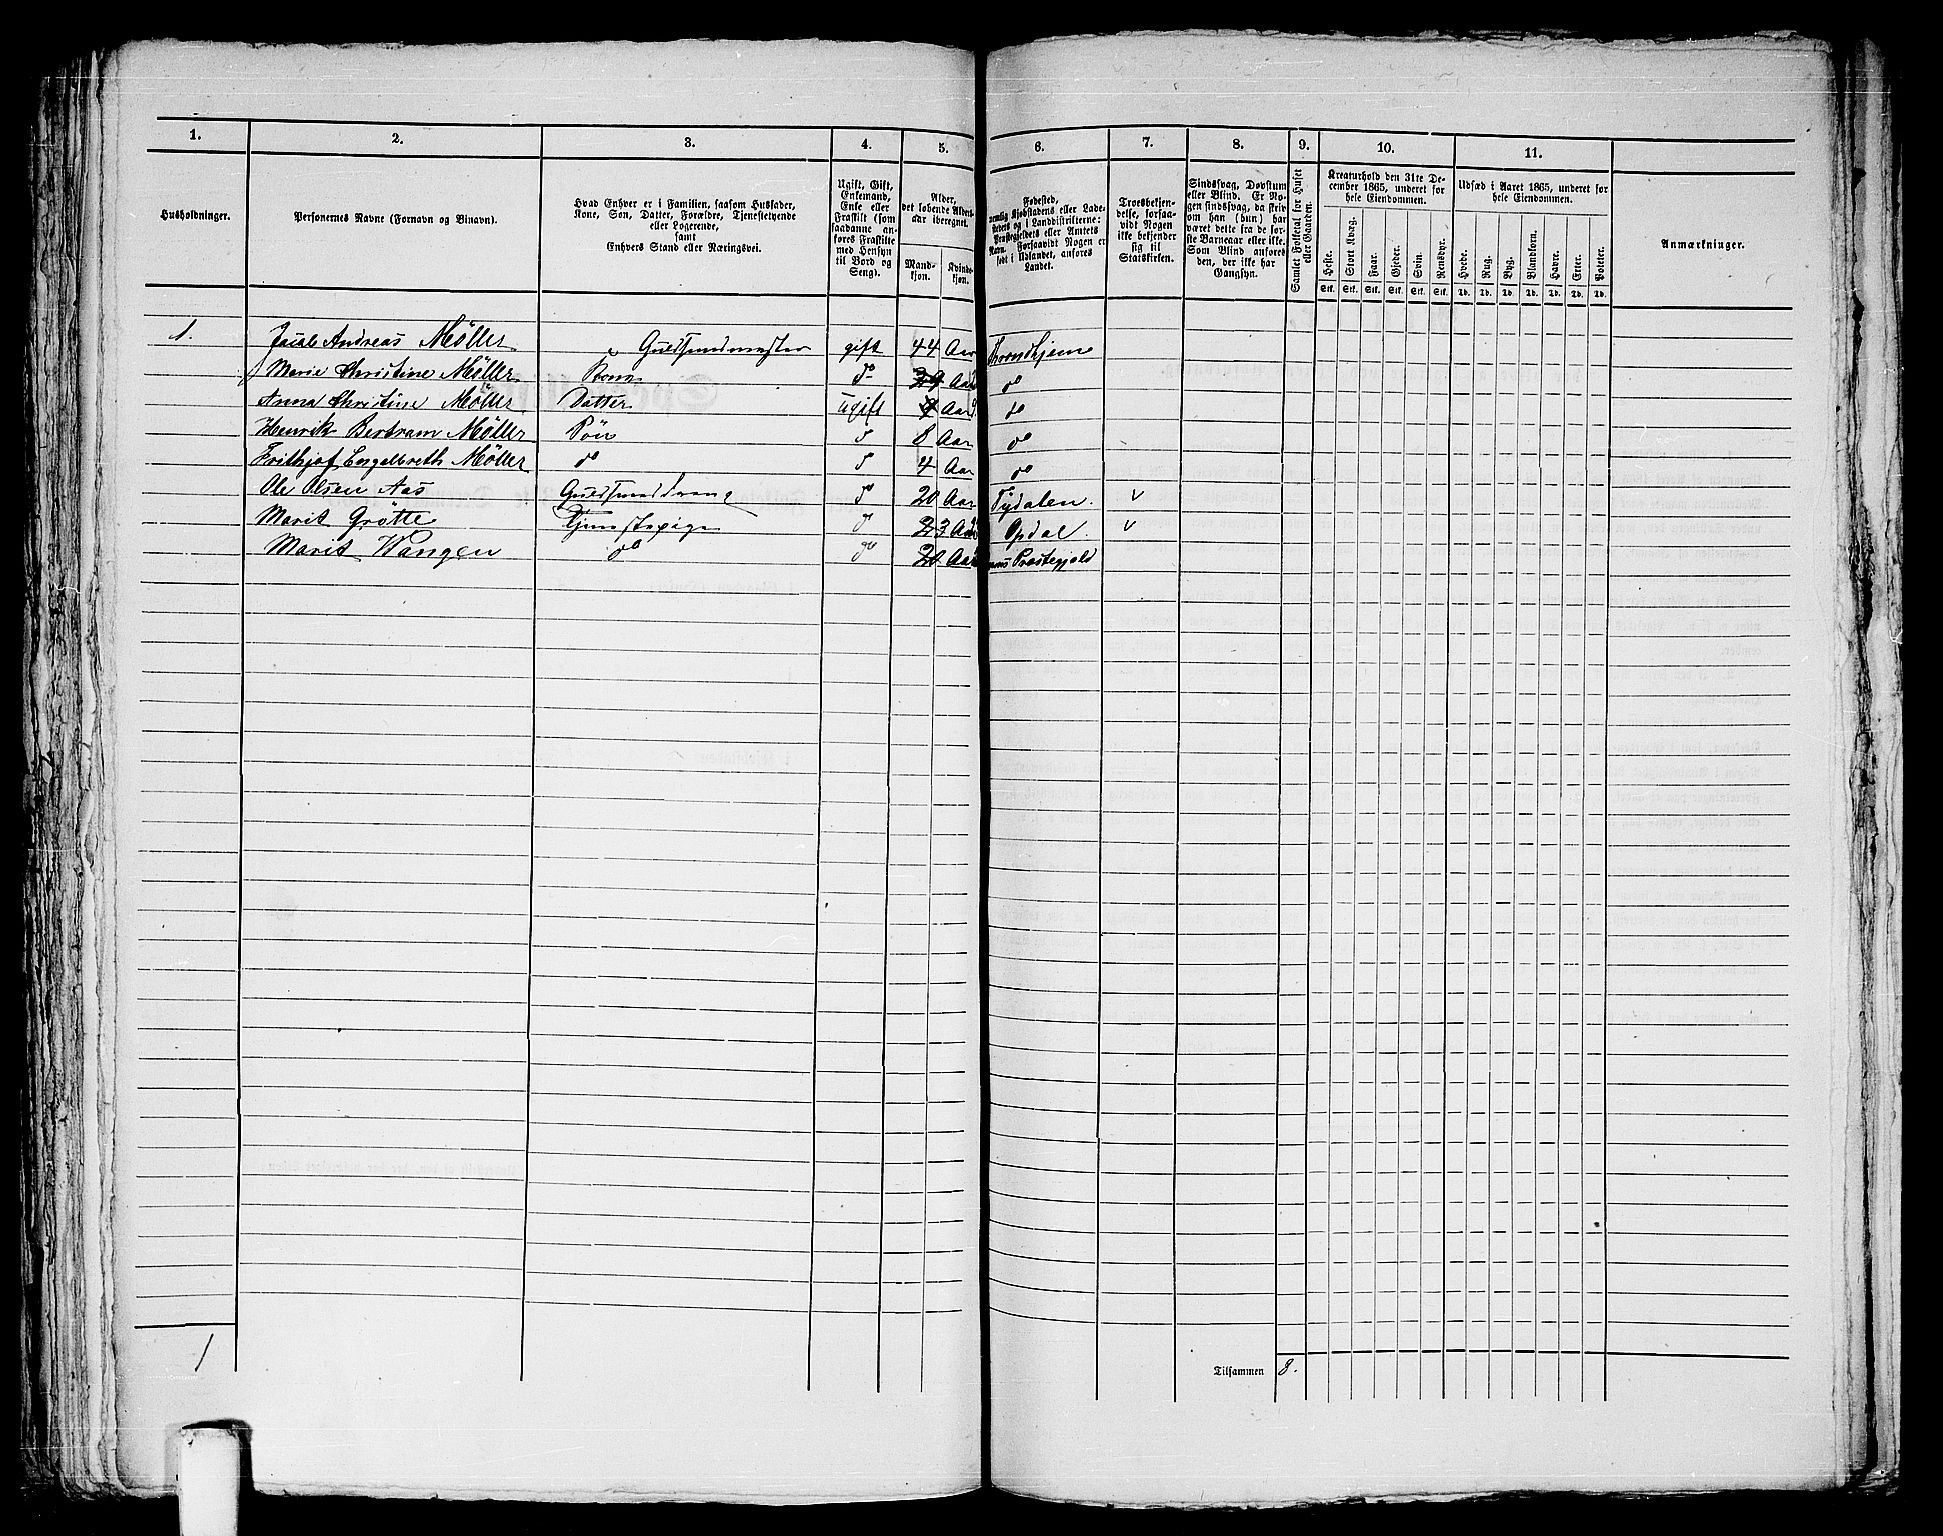 1. 2. 3. 4. 5. 6. 7. 8. 9. 10. 11.
Husholdninger.
Personernes Navne (Fornavn og Binavn).
Hvad Enhver er i Familien, saasom Husfader,
Kone, Søn, Datter, Forældre, Tjenestetyende
eller Logerende,
samt
Enhvers Stand eller Næringsvei.
Ugift, Gift,
Enkemand,
Enke eller
Fraskilt (som
saadanne an-
føres Fraskilte
med Hensyn
til Bord og
Seng).
Alder,
det løbende Alders-
aar iberegnet.
Mand-
kjøn.
Kvinde-
kjøn.
Fødested,
nemlig Kjøbstadens eller Lade-
stedets og i Landdistrikterne:
Præstegjeldets eller Amtets
Navn. Forsaavidt Nogen er
født i Udlandet, anføres
Landet.
Troesbekjen-
delse, forsaa-
vidt Nogen
ikke bekjender
sig til
Statskirken.
Sindssvag, Døvstum
eller Blind. Er No-
gen sindssvag, da skriv
om han (hun) har
været dette fra de før-
ste Barneaar eller ikke.
Som Blind anføres
den, der ikke har
Gangsyn.
Samlet Folketal for Huset
eller Gaarden.
Kreaturhold den 31te De-
cember 1865, underet for
hele Eiendommen.
Heste. Stort Kvæg. Faar. Gjeder. Svin. Rensdyr.
Stk. Stk. Stk. Stk. Stk. Stk.
Udsæd i Aaret 1865, underet for
hele Eiendommen.
Hvede. Rug. Byg. Blandkorn. Havre. Erter. Poteter.
Td. Td. Td. Td. Td. Td. Td.
Anmærkninger.
1. Jacob Andreas Möller Guldsmedmester gift 44 Aar Throndhjem
Marie Christine Möller Kone do 29 Aar do
Anna Christine Möller Datter ugift 9 Aar do
Henrik Bertram Möller Sön 8 Aar do
Frithjof Engelbreth Möller do 4 Aar do
Ole Olsen Aas Guldsmeddreng do 20 Aar Tydalen
Marit Grötte Tjenestepige do 23 Aar Opdal
Marit Vangen do do 20 Aar Præstegjeld
1
Tilsammen 8.